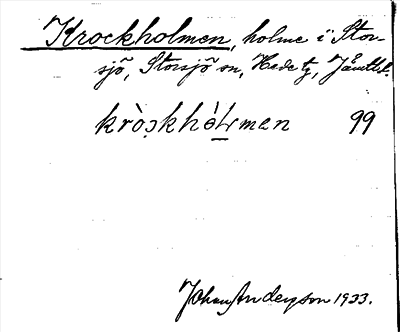 Krockholmen, holme i Stor-
sjö, Storsjö sn, Hede tg, Jämtl.
kròckhòLmen 99
Johan Anderson 1933.